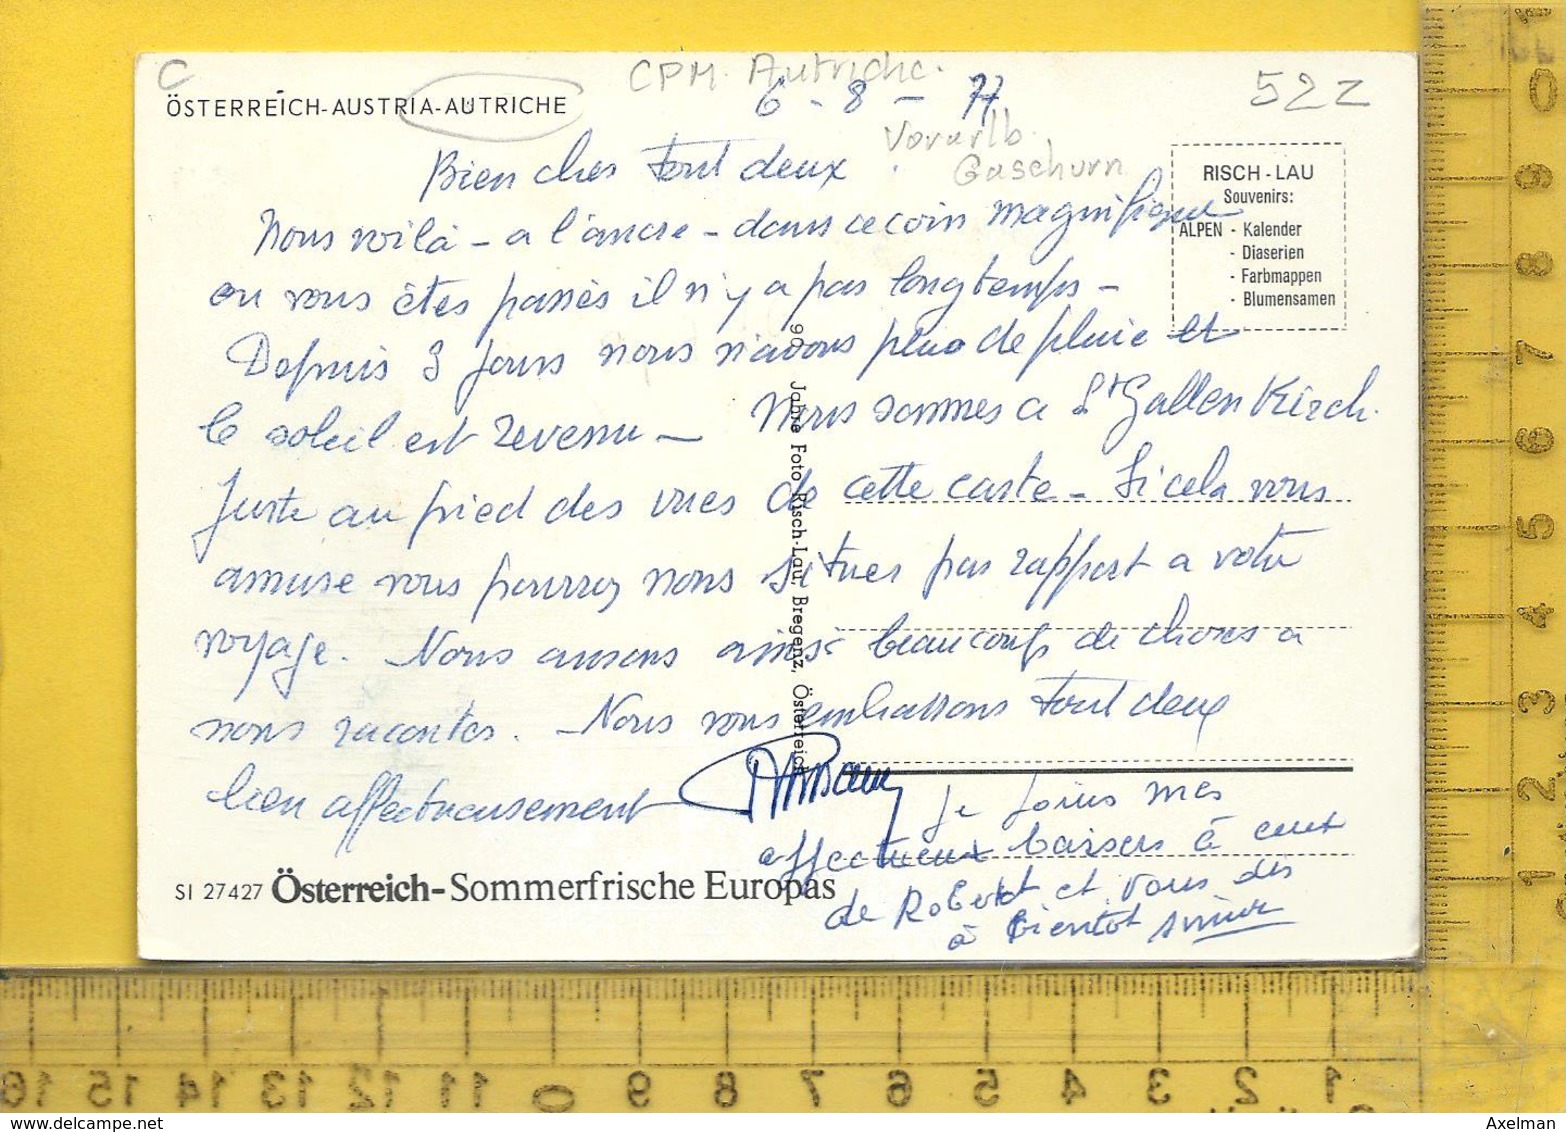 C
CPM. Autriche.
522
ÖSTERREICH-AUSTRIA-AUTRICHE
6 - 8 - 77
Vorarlb.
Gaschurn
RISCH - LAU
Souvenirs:
ALPEN - Kalender
- Diaserien
- Farbmappen
- Blumensamen
Bien chers tout deux.
Nous voilà - a l'ancre - dans ce coin magnifique
ou vous êtes passés il n'y a pas longtemps -
Depuis 3 jours nous n'avons plus de pluie et
le soleil est revenu - Nous sommes a St Gallenkirch.
Juste au pied des vues de cette carte - Si cela vous
amuse vous pourrez nous situer par rapport a votre
voyage. Nous aurons ainsi beaucoup de choses a
nous raconter. - Nous vous embrassons tout deux
bien affectueusement
Je joins mes
affectueux baisers à ceux
de Robert et vous dis
à bientôt
90 Jahre Foto Risch-Lau, Bregenz, Österreich
SI 27427 Österreich-Sommerfrische Europas
0 9 8 7 6 5 4 3 2 1
16 15 14 13 12 11 0 9 8 7 6 5 4 3 2 1
www.delcampe.net
Axelman